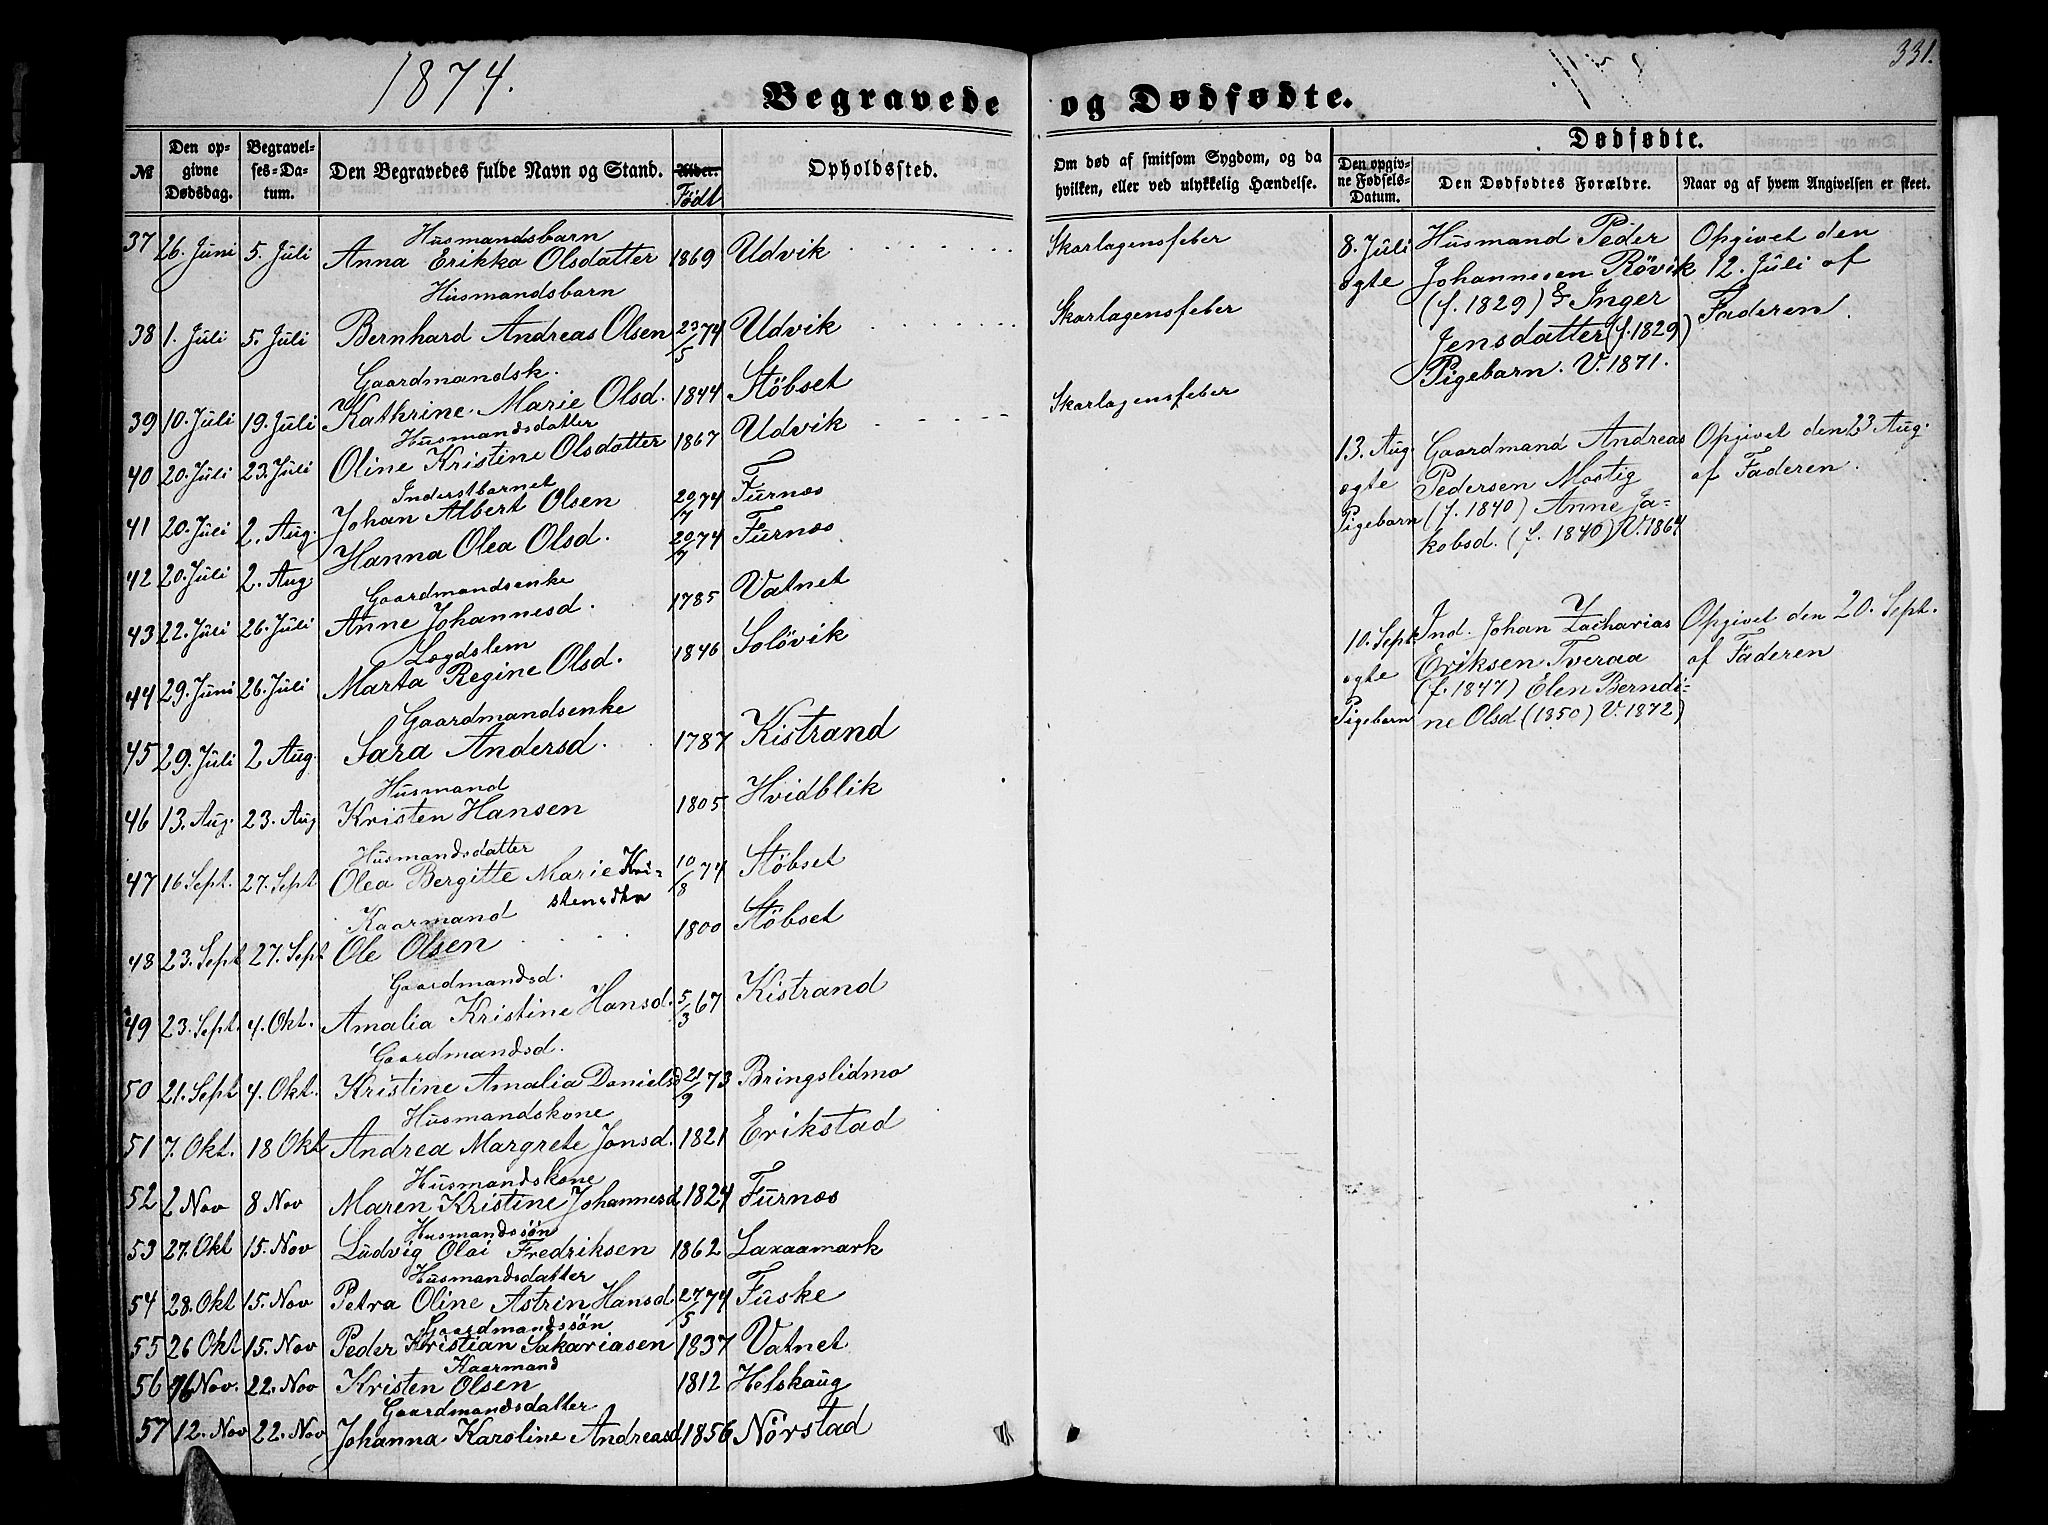 1874.
331.
Begravede og Dødfødte.
№ Den opgivne Dødsdag. Begravelses-Datum. Den Begravedes fulde Navn og Stand. Alder. Født Opholdssted.
Om død af smitsom Sygdom, og da hvilken, eller ved ulykkelig Hændelse.
Dødfødte.
Den opgivne Fødsels-Datum. Den Dødfødtes Forældre. Naar og af hvem Angivelsen er skeet.
Husmandsbarn
37 26. Juni 5. Juli Anna Erikka Olsdatter 1869 Udvik Skarlagensfeber
Husmandsbarn
38 1. Juli 5. Juli Bernhard Andreas Olsen 23/5 74 Udvik Skarlagensfeber
Gaardmandsk.
39 10. Juli 19. Juli Kathrine Marie Olsd. 1844 Stöbset
Husmandsdatter
40 20. Juli 23. Juli Oline Kristine Olsdatter 1867 Udvik Skarlagensfeber
Inderstbarnet
41 20. Juli 2. Aug. Johan Albert Olsen 20/7 74 Furnæs
42 20. Juli 2. Aug. Hanna Olea Olsd. 20/7 74 Furnæs
Gaardmandsenke
43 22. Juli 26. Juli Anne Johannesd. 1785 Vatnet
Lægdslem
44 29. Juni 26. Juli Marta Regine Olsd. 1846 Solövik
Gaardmandsenke
45 29. Juli 2 Aug. Sara Andersd. 1787 Kistrand
Husmand
46 13. Aug. 23. Aug Kristen Hansen 1805 Hvidblik
Husmandsdatter
47 16 Sept. 27. Sept Olea Bergitte Marie Kri- 10/8 74 Stöbset
stensdtr
Kaarmand
48 23. Sept 27. Sept Ole Olsen 1800 Stöbset
Gaardmandsd.
49 23. Sept. 4. Okt. Amalia Kristine Hansd. 5/3 67 Kistrand
Gaardmandsd.
50 21. Sept 4. Okt. Kristine Amalia Danielsd 21/9 73 Bringslidmo
Husmandskone
51 7. Okt. 18 Okt Andrea Margrete Jonsd. 1821 Erikstad
Husmandskone
52 2 Nov 8 Nov Maren Kristine Johannesd 1824 Furnæs
Husmandssön
53 27. Okt 15. Nov Ludvig Olai Fredriksen 1862 Laxaamark
Husmandsdatter
54 28. Okt 15. Nov Petra Oline Astrin Hansd 27/5 74 Fuske
Gaardmandssön
55 26 Okt 15. Nov Peder Kristian Sakariasen 1837 Vatnet
Kaarmand
56 16 Nov. 22. Nov Kristen Olsen 1812 Helskaug
Gaardmandsdatter
57 12. Nov 22. Nov Johanna Karoline Andreasd 1856 Nörstad
8. Juli Husmand Peder Opgivet den
ægte Johannesen Rövik 12. Juli af
(f. 1829) & Inger Faderen.
Jensdatter (f. 1829)
Pigebarn. V. 1871.
13. Aug. Gaardmand Andreas Opgivet den 23 Aug.
ægte Pedersen Mostig af Faderen.
Pigebarn (f. 1840) Anne Ja-
kobsd. (f. 1840) V. 1864
10. Sept. Ind. Johan Zacharias Opgivet den 20. Sept.
ægte Eriksen Tveraa af Faderen
(f. 1847) Elen Berndi-
Pigebarn ne Olsd (1850) V. 1872)